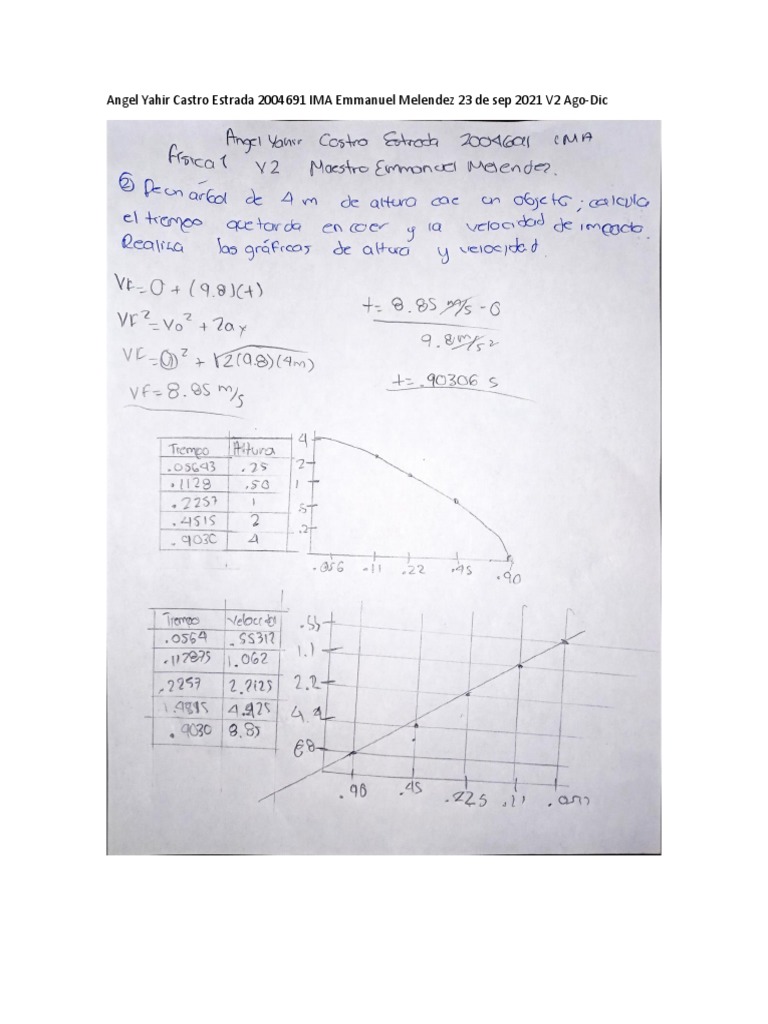 Angel Yahir Castro Estrada 2004691 IMA Emmanuel Melendez 23 de sep 2021 V2 Ago-Dic
Angel Yahir Castro Estrada 2004691 IMA
Física 1 V2 Maestro Emmanuel Melendez.
② De un árbol de 4 m de altura cae un objeto; calcula
el tiempo que tarda en caer y la velocidad de impacto.
Realiza las gráficas de altura y velocidad.
Vf=0 + (9.8)(t)
Vf²=Vo² + 2ax
Vf=(0)² + √2(9.8)(4m)
Vf=8.85 m/s
t= 8.85 m/s - 0
9.8 m/s²
t= .90306 s
Tiempo Altura
.05643 .25
.1128 .50
.2257 1
.4515 2
.9030 4
4
2
1
.5
.2
.056 .11 .22 .45 .90
Tiempo Velocidad
.0564 .55312
.112875 1.062
.2257 2.2125
1.4515 4.425
.9030 8.85
.55
1.1
2.2
4.4
.90 .45 .225 .11